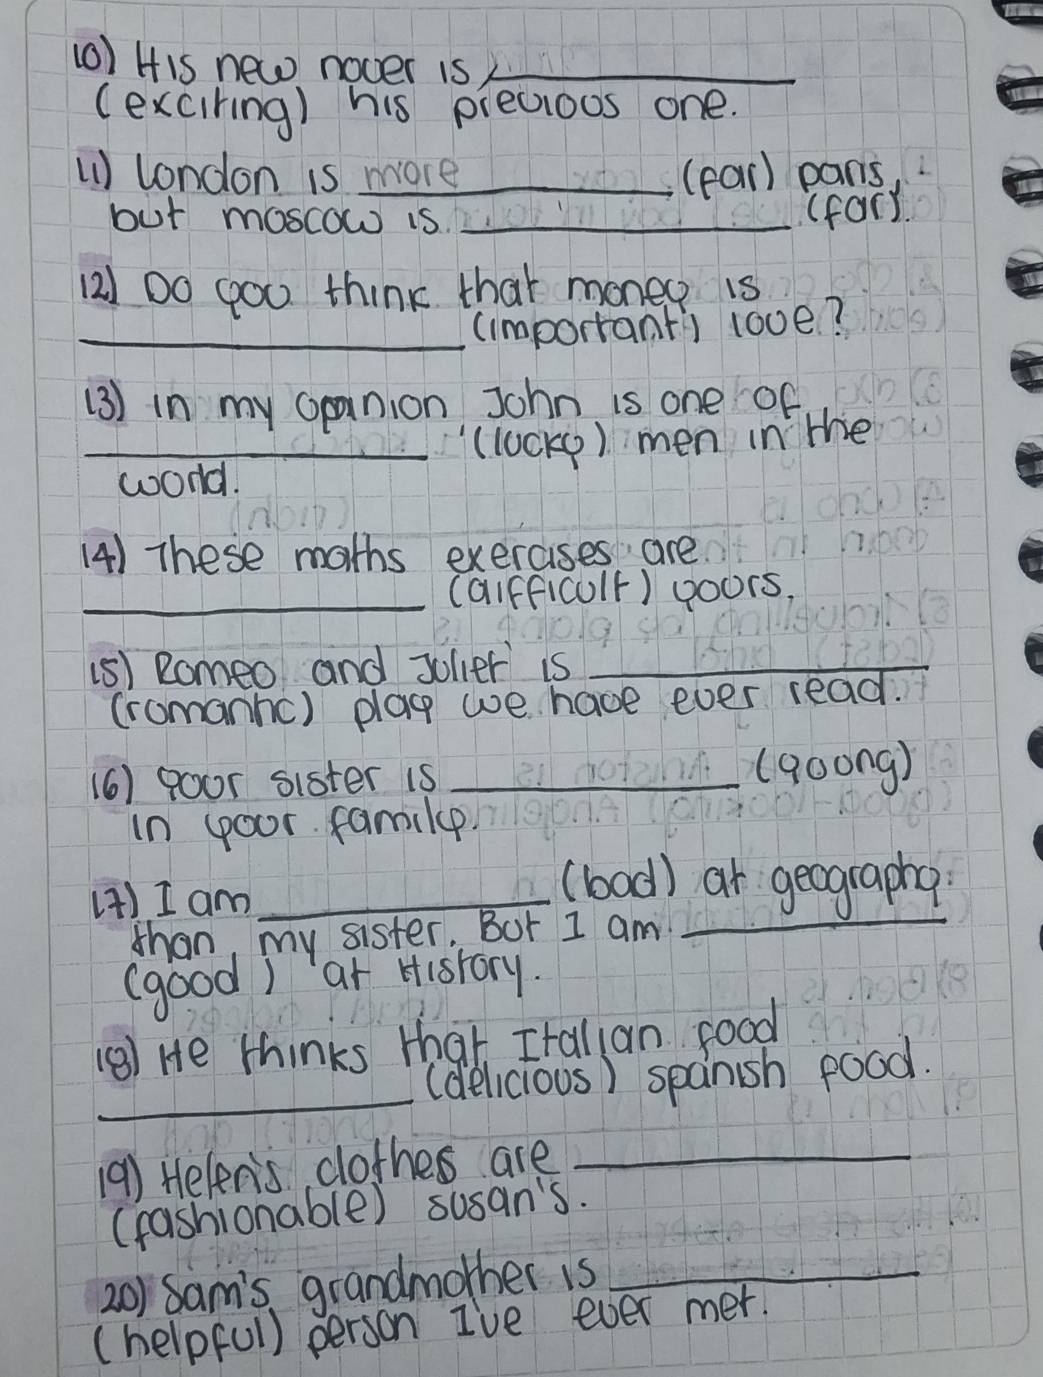 10) His new nover is ____________
(exciting) his previous one.
11) London is more ____________ (far) paris,
but moscow is ____________ (far).
12) Do you think that money is
____________ (important) love?
13) in my opanion John is one of
____________ (lucky) men in the
world.
14) These maths exercises are
____________ (difficult) yours.
15) Romeo and Juliet is ____________
(romantic) play we have ever read.
16) your sister is ____________ (young)
in your family.
17) I am ____________ (bad) at geography
than my sister. But I am ____________
(good) at History.
18) He thinks that Italian food
____________ (delicious) spanish food.
19) Helen's clothes are ____________
(fashionable) susan's.
20) Sam's grandmother is ____________
(helpful) person I've ever met.